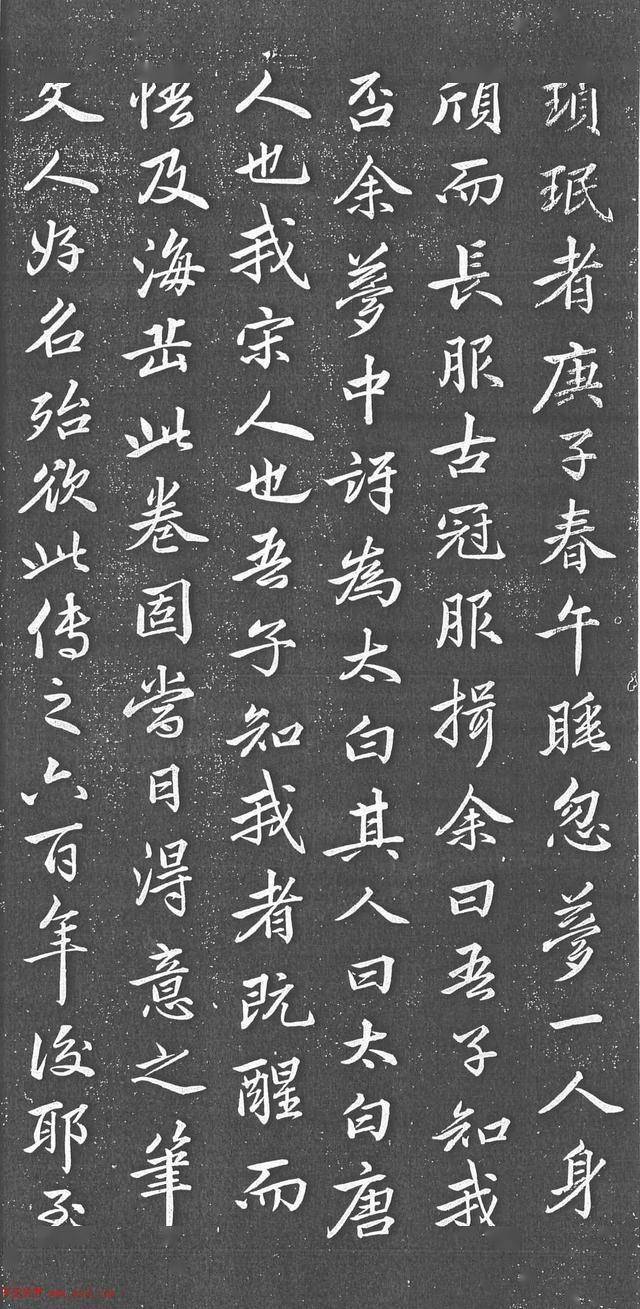 瑣珉者庚子春午睡忽夢一人身
頎而長服古冠服揖余曰吾子知我
否余夢中訝為太白其人曰太白唐
人也我宋人也吾子知我者既醒而
悟及海岳此卷固當日得意之筆
文人好名殆欲此傳之六百年後耶